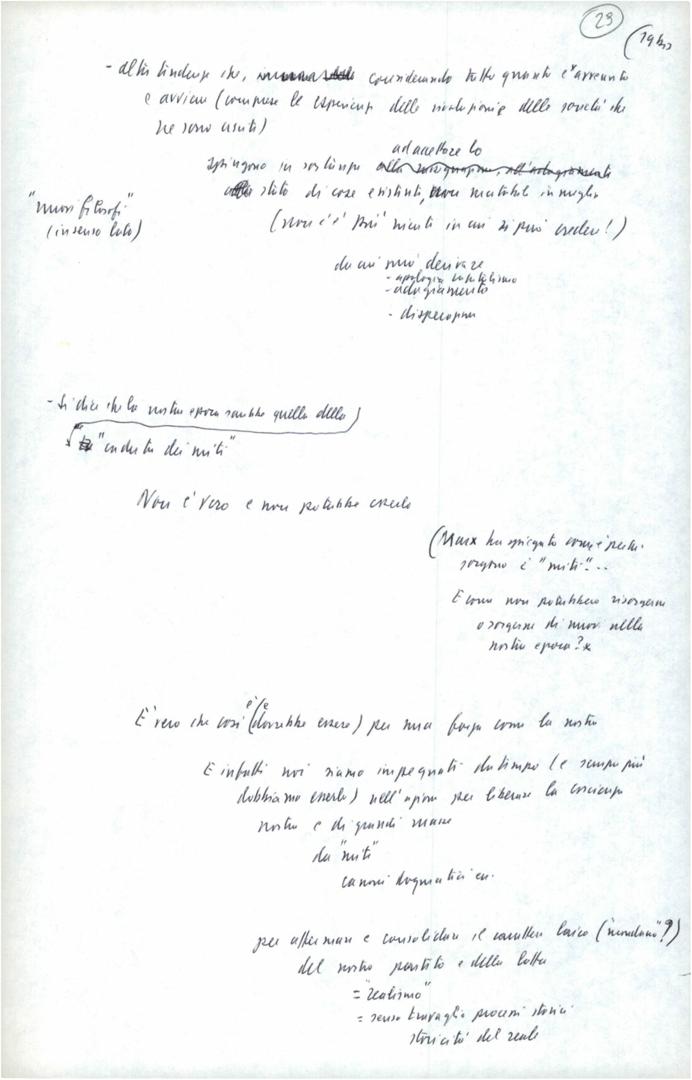 29
(19 bis
- altri tendenze che, considerando tutto quanto è avvenuto
e avviene (comprese le esperienze delle rivoluzioni e delle società che
ne sono uscite)
ad accettare lo
spingono in sostanza
stato di cose esistenti, non mutabile in meglio
"nuovi filosofi"
(in senso lato)
(non c'è più niente in cui si può credere!)
da cui può derivare
- apologia capitalismo
- adagiamento
- disperazione
- Si dice che la nostra epoca sarebbe quella della
"caduta dei miti"
Non è vero e non potrebbe esserlo
(Marx ha spiegato come e perché
sorgono i "miti"...
E come non potrebbero risorgerne
o sorgerne di nuovi nella
nostra epoca?
E' vero che così è (e dovrebbe essere) per una forza come la nostra
E infatti noi siamo impegnati da tempo (e sempre più
dobbiamo esserlo) nell'azione per liberare la coscienza
nostra e di grandi masse
da "miti"
canoni dogmatici ecc.
per affermare e consolidare il carattere laico ("mondano"?)
del nostro partito e della lotta
= "realismo"
= senso travaglio processi storici
storicità del reale